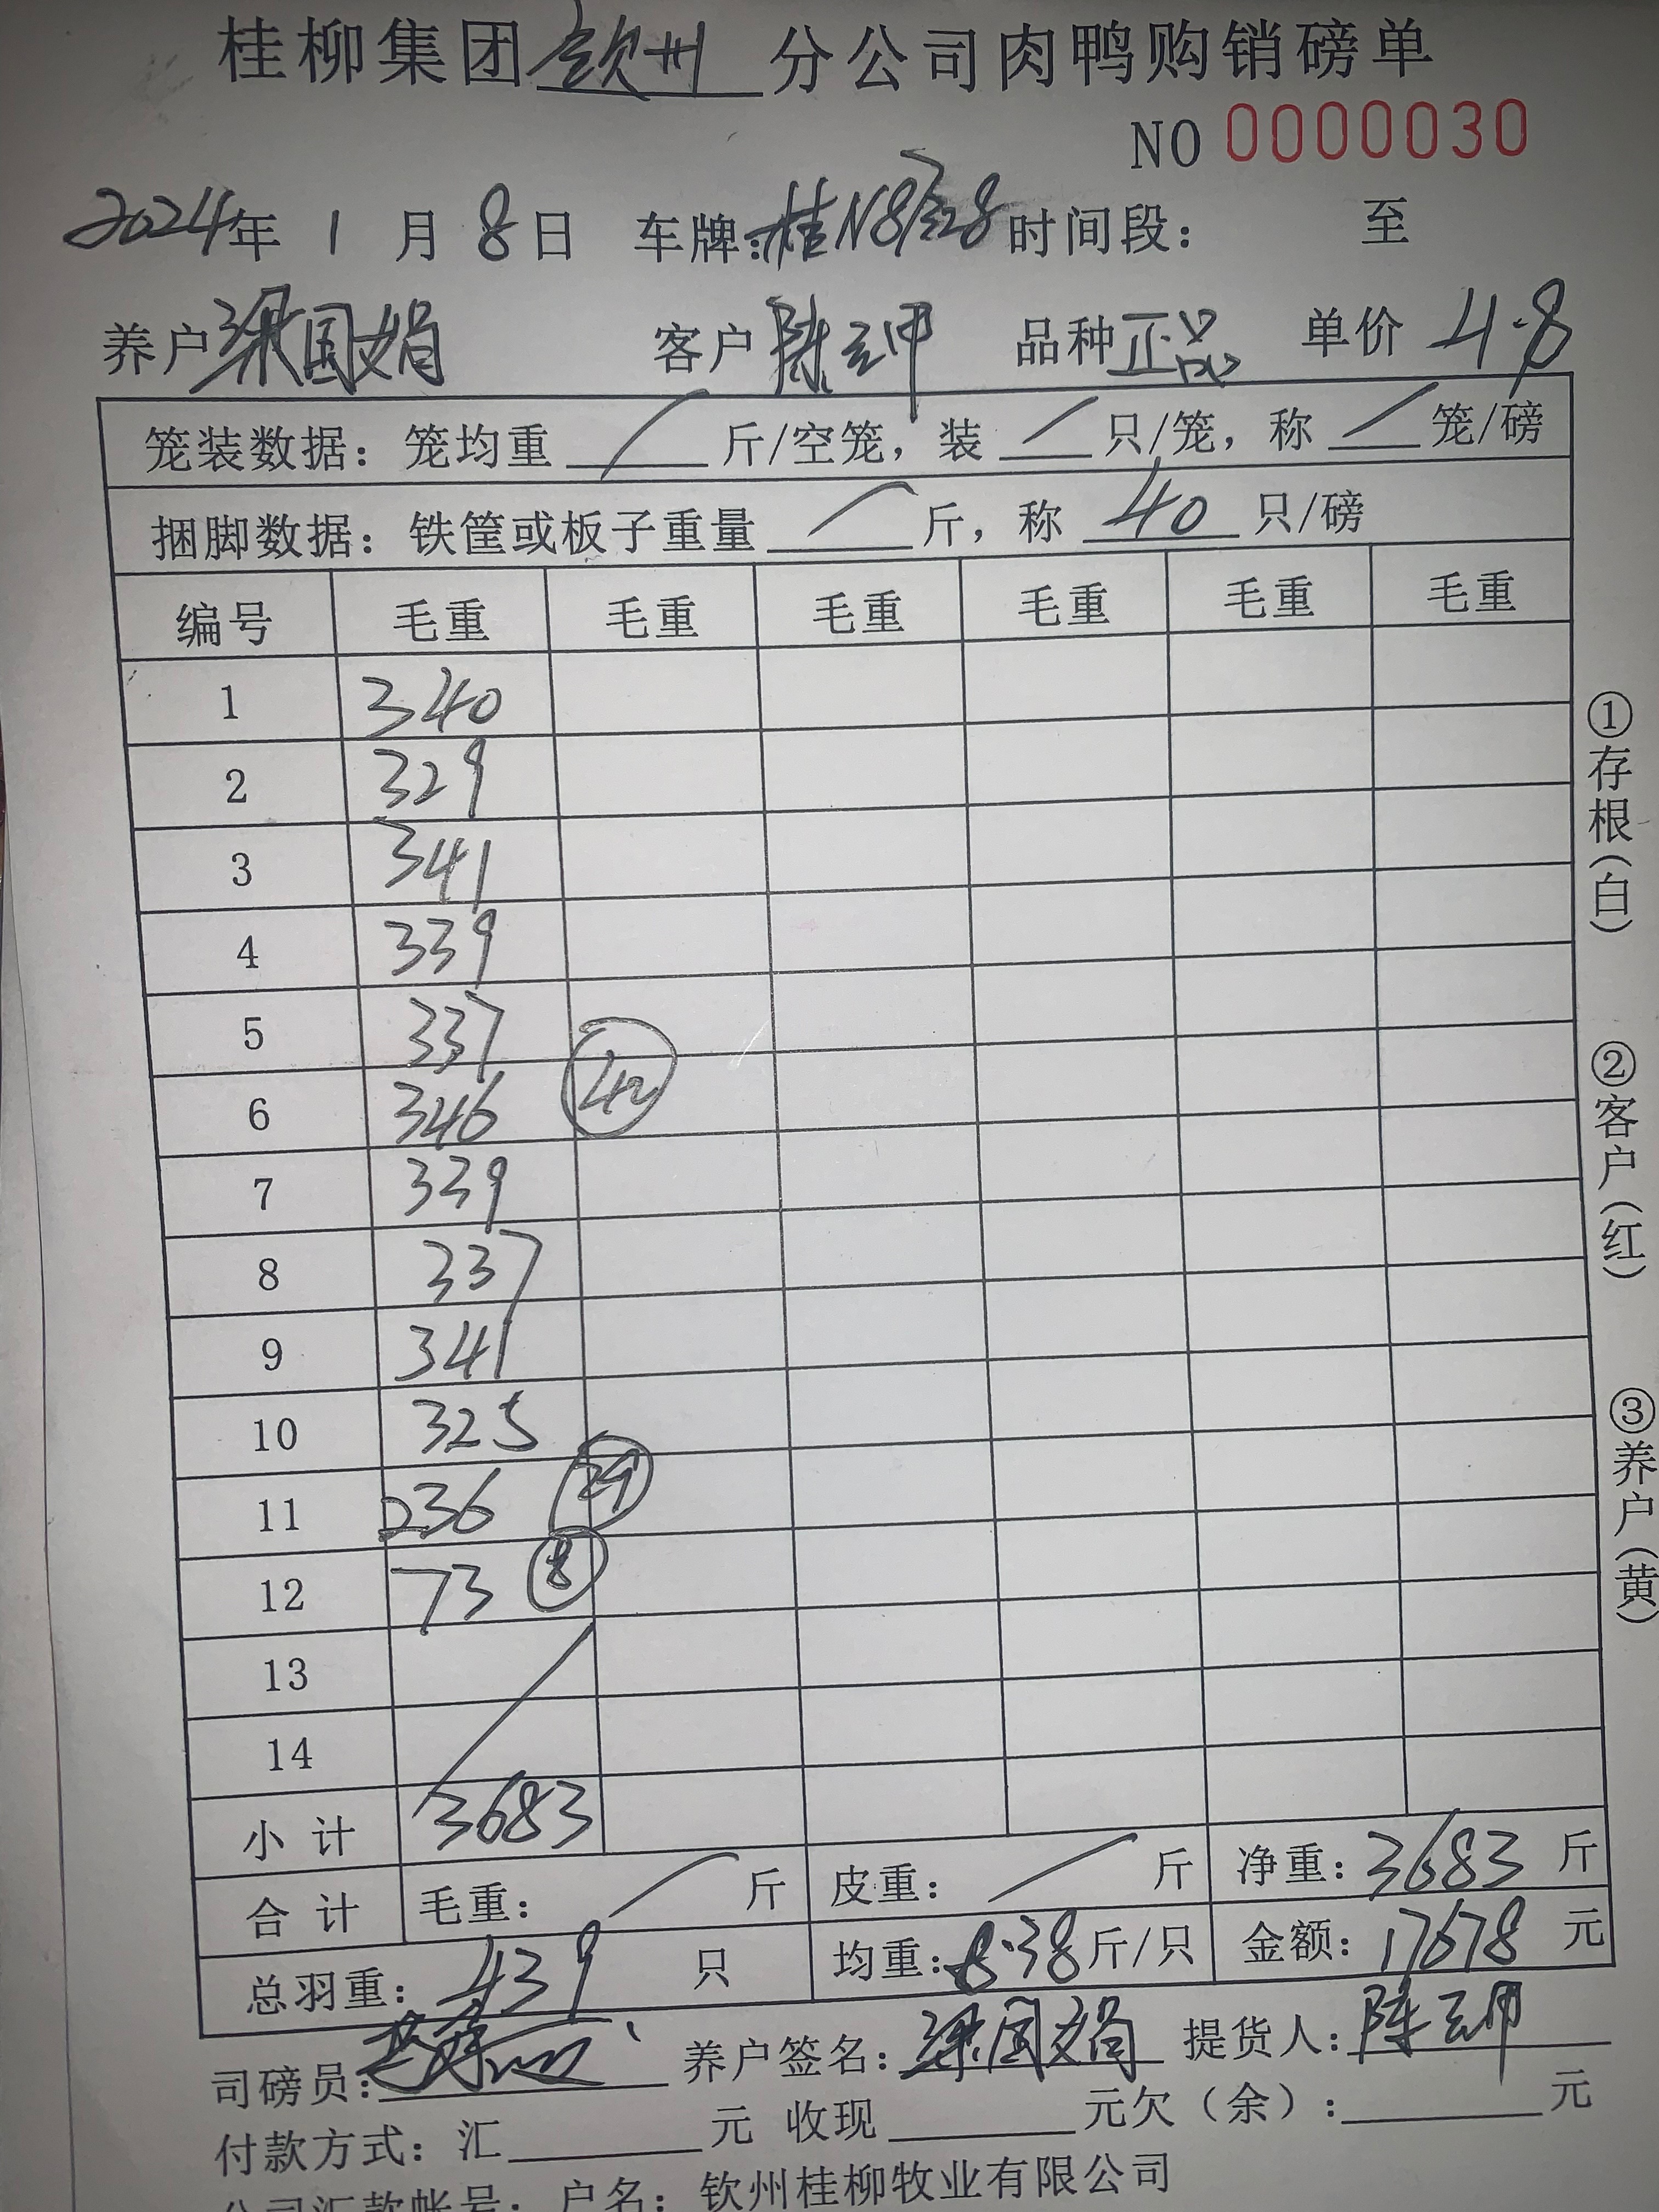 桂柳集团钦州分公司肉鸭购销磅单
NO 0000030
2024年 1 月 8 日 车牌: 时间段: 至
养户梁国娟 客户陈 品种正品 单价 4.8
笼装数据: 笼均重 / 斤/空笼, 装 / 只/笼, 称 / 笼/磅
捆脚数据: 铁筐或板子重量 / 斤, 称 40 只/磅
编号 毛重 毛重 毛重 毛重 毛重 毛重
1 340
2 329
3 341
4 339
5 337
6 346 42
7 339
8 337
9 341
10 325
11 236 29
12 73 8
13
14
小计 3683
合计 毛重: / 斤 皮重: / 斤 净重: 3683 斤
总羽重: 439 只 均重: 8.38 斤/只 金额: 17678 元
司磅员: 养户签名: 梁国娟 提货人: 陈
付款方式: 汇 元 收现 元欠(余): 元
公司汇款帐号: 户名: 钦州桂柳牧业有限公司
①存根(白)
②客户(红)
③养户(黄)